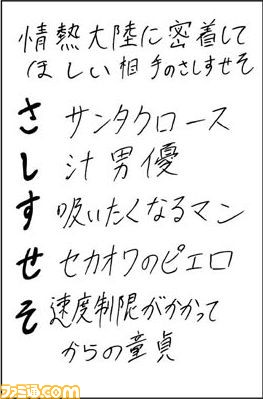 情熱大陸に密着して
ほしい相手のさしすせそ
さ サンタクロース
し 汁男優
す 吸いたくなるマン
せ セカオワのピエロ
そ 速度制限がかかって
からの童貞
ファミ通.com